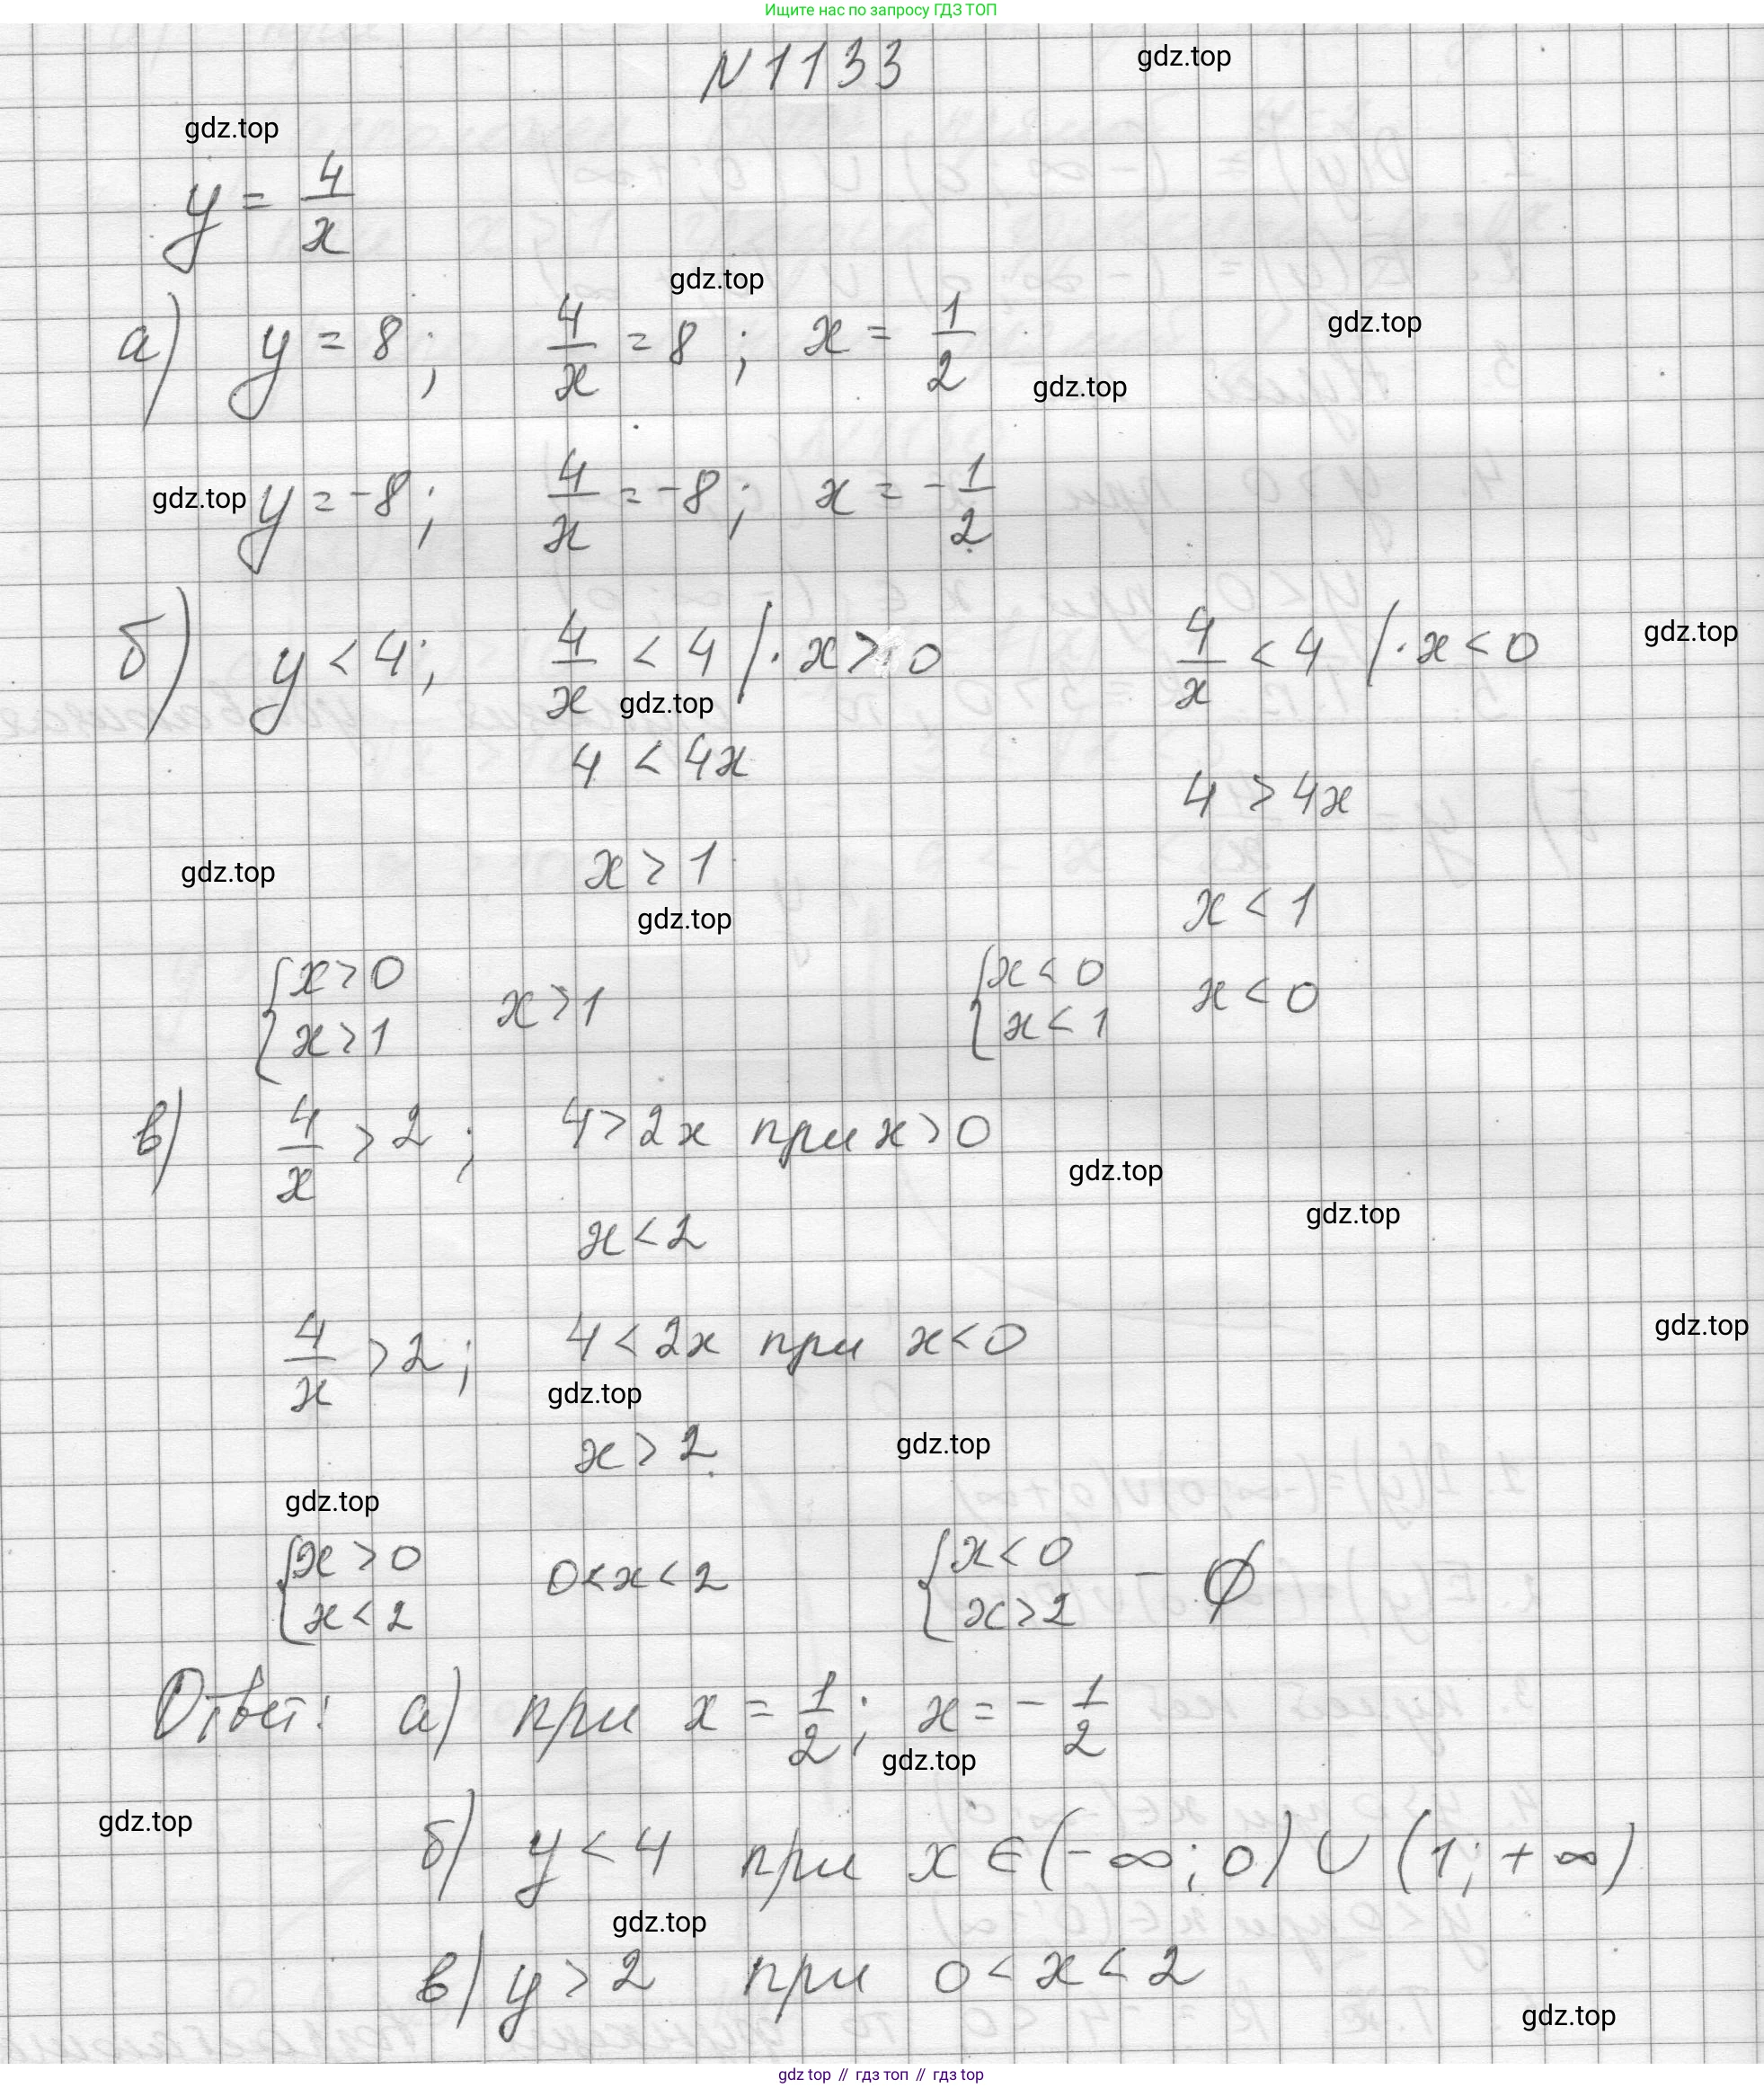 Ищите нас по запросу ГДЗ ТОП
N 1133
gdz.top
gdz.top
y = 4/x
gdz.top
а) y = 8; 4/x = 8; x = 1/2
gdz.top
gdz.top
gdz.top y = -8; 4/x = -8; x = -1/2
б) y < 4; 4/x < 4 /· x > 0 4/x < 4 /· x < 0
gdz.top
gdz.top
4 < 4x
4 > 4x
gdz.top x > 1
x < 1
gdz.top
{x > 0 {x < 0
x > 1 x < 0
x > 1 x < 1
в) 4/x > 2; 4 > 2x при x > 0
gdz.top
gdz.top
x < 2
gdz.top
4/x > 2; 4 < 2x при x < 0
gdz.top
x > 2
gdz.top
gdz.top
{x > 0 {x < 0
0 < x < 2 - ∅
x < 2 x > 2
Ответ: а) при x = 1/2; x = -1/2
gdz.top
gdz.top
б) y < 4 при x ∈ (-∞; 0) ∪ (1; +∞)
gdz.top
в) y > 2 при 0 < x < 2
gdz.top
gdz.top // гдз топ // гдз top